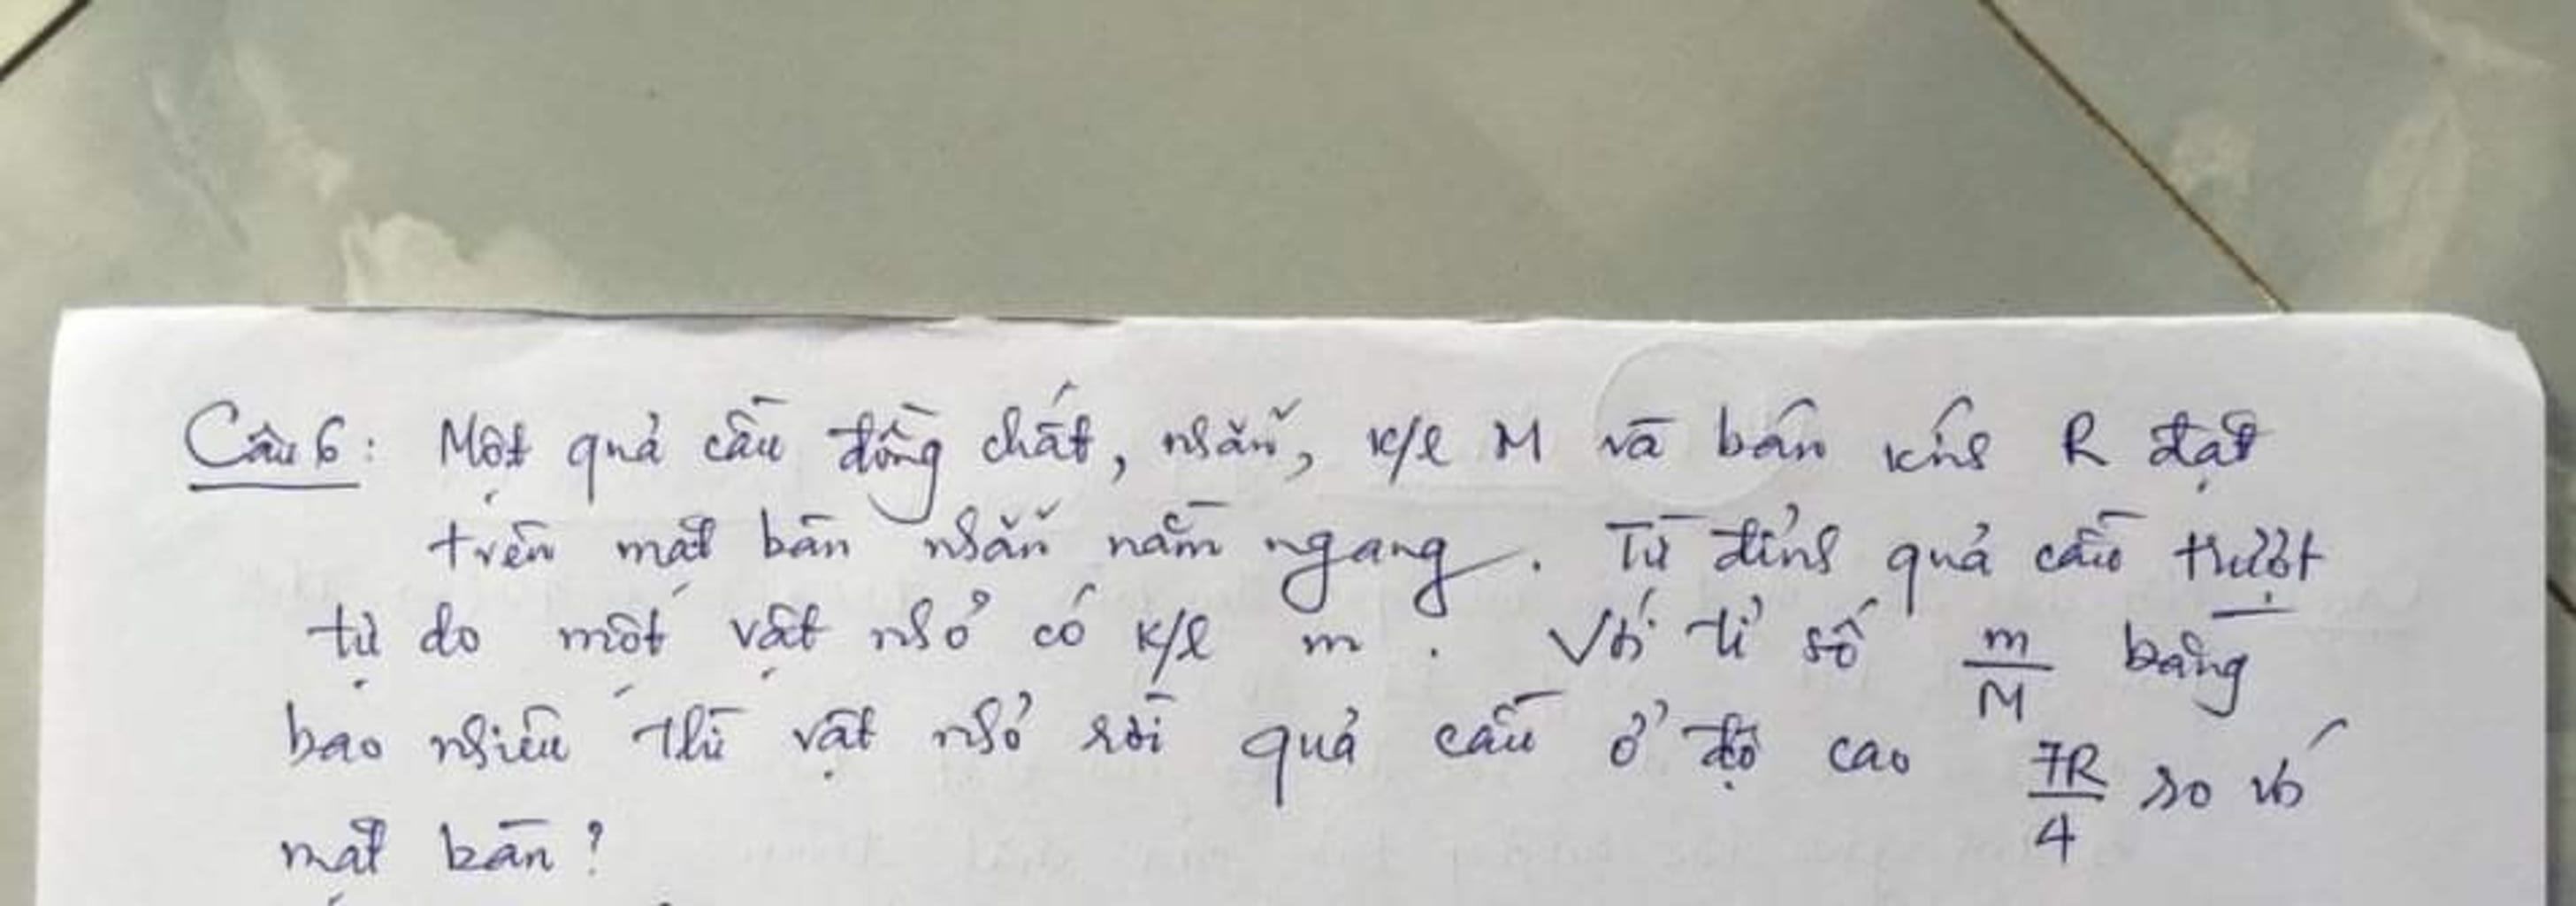 Câu 6: Một quả cầu đồng chất, nhẵn, k/l M và bán kính R đặt
trên mặt bàn nhẵn nằm ngang. Từ đỉnh quả cầu trượt
tự do một vật nhỏ có k/l m. Với tỉ số m/M bằng
bao nhiêu thì vật nhỏ rời quả cầu ở độ cao 7R/4 so với
mặt bàn?